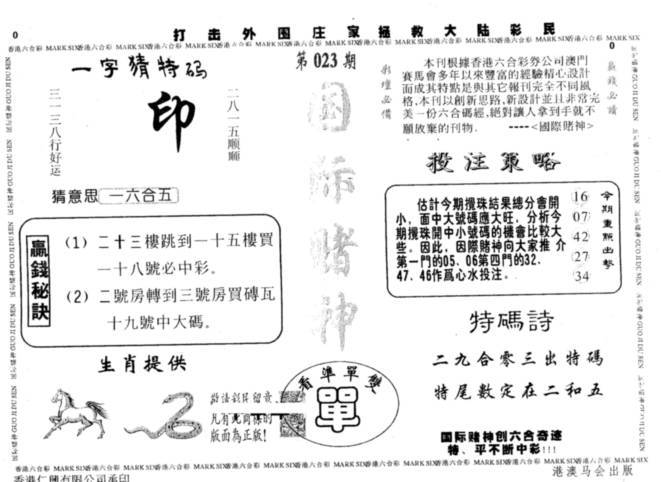 0
打击外围庄家拯救大陆彩民
香港六合彩 MARK SIX香港六合彩 MARK SIX香港六合彩 MARK SIX香港六合彩 MARK SIX香港六合彩 MARK SIX香港六合彩 MARK SIX香港六合彩 MARK SIX
0
一字猜特码
印
三一三八行好运
二八一五顺顺
猜意思 一六合五
贏錢秘訣
(1) 二十三樓跳到一十五樓買
一十八號必中彩。
(2) 二號房轉到三號房買磚瓦
十九號中大碼。
生肖提供
第023期
彩壇必備
国际赌神
本刊根據香港六合彩券公司澳門
賽馬會多年以來豐富的經驗精心設計
而成其特點是與其它報刊完全不同風
格,本刊以創新思路,新設計並且非常完
美一份六合碼經,絕對讓人拿到手就不
願放棄的刊物. ----<國際賭神>
贏錢必讀
投注策略
估計今期攪珠結果總分會開
小,面中大號碼應大旺,分析今
期攪珠開中小號碼的機會比較大
些。因此,因際賭神向大家推介
第一門的05、06第四門的32、
47、46作爲心水投注。
16
07
42
27
34
今期重點出擊
特碼詩
二九合零三出特碼
特尾數定在二和五
看準單雙
單
敬請彩民留意,
凡有此商標的
版面為正版!
国际赌神创六合奇迹
特、平不断中彩!!!
香港六合彩 MARK SIX香港六合彩 MARK SIX香港六合彩 MARK SIX香港六合彩 MARK SIX香港六合彩 MARK SIX香港六合彩 MARK SIX香港六合彩 MARK SIX
香港仁興有限公司承印
港澳马会出版